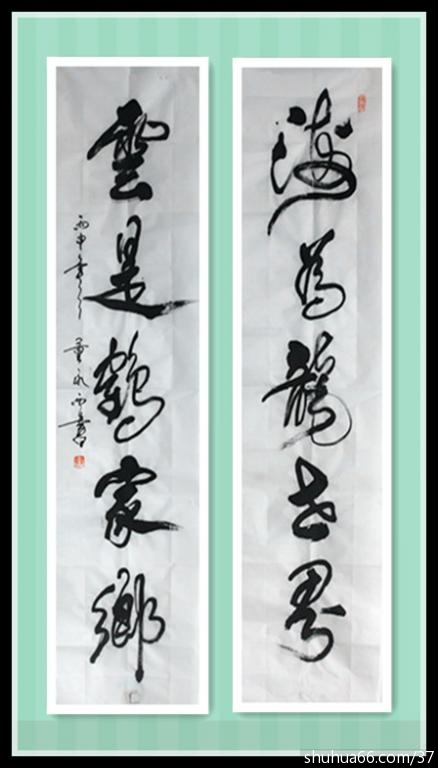 海為龍世界
雲是鶴家鄉
丙申年
書
shuhua66.com/37